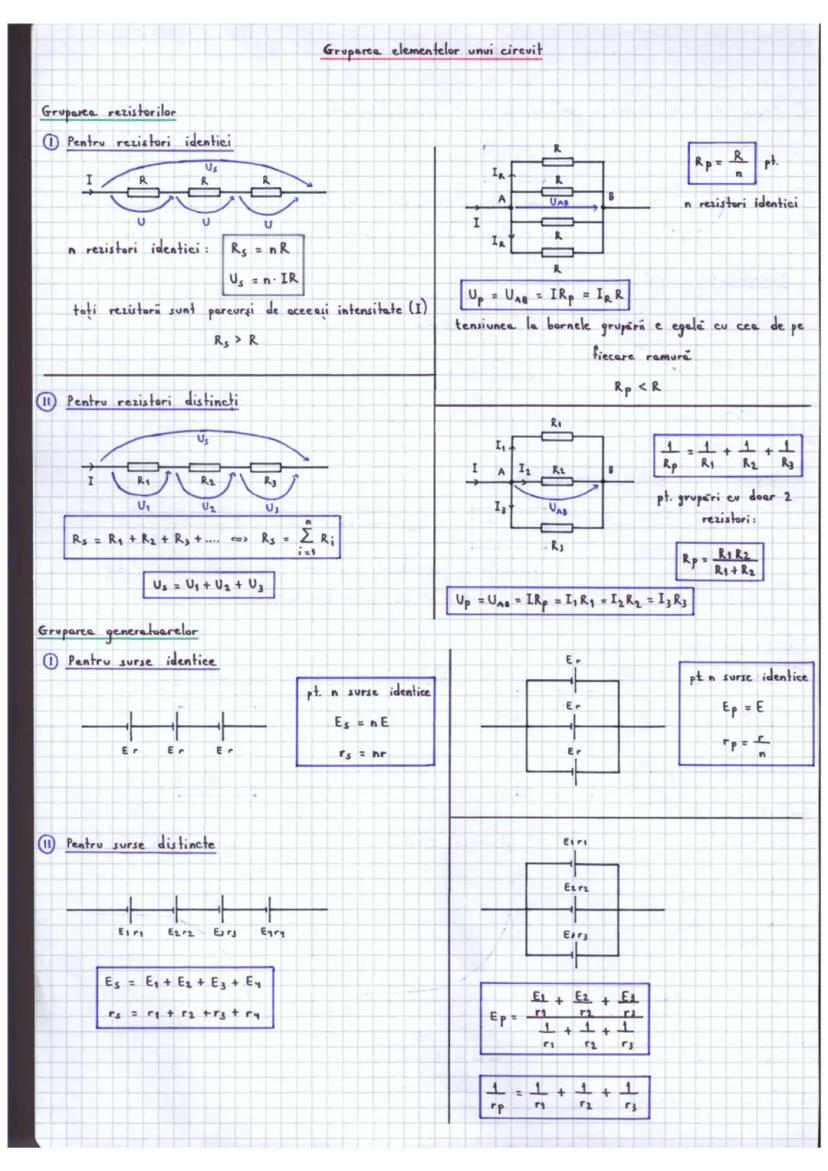 Gruparea elementelor unui circuit
Gruparea rezistorilor
I Pentru rezistori identici
Us
I R R R
U U U
n rezistori identici: Rs = nR
Us = n · IR
toți rezistorii sunt parcurși de aceeași intensitate (I)
Rs > R
R
IR R
A UAB B
I
IR R
R
Rp = R/n pt.
n rezistori identici
Up = UAB = IRp = IR R
tensiunea la bornele grupării e egală cu cea de pe
fiecare ramură
Rp < R
II Pentru rezistori distincți
Us
I R1 R2 R3
U1 U2 U3
Rs = R1 + R2 + R3 + .... <=> Rs = Σ(i=1, n) Ri
Us = U1 + U2 + U3
R1
I1
I A I2 R2 B
I3 UAB
R3
1/Rp = 1/R1 + 1/R2 + 1/R3
pt. grupări cu doar 2
rezistori:
Rp = R1R2/(R1+R2)
Up = UAB = IRp = I1R1 = I2R2 = I3R3
Gruparea generatoarelor
I Pentru surse identice
E r E r E r
pt. n surse identice
Es = nE
rs = nr
E r
E r
E r
pt n surse identice
Ep = E
rp = r/n
II Pentru surse distincte
E1 r1 E2 r2 E3 r3 E4 r4
Es = E1 + E2 + E3 + E4
rs = r1 + r2 + r3 + r4
E1 r1
E2 r2
E3 r3
Ep = (E1/r1 + E2/r2 + E3/r3)/(1/r1 + 1/r2 + 1/r3)
1/rp = 1/r1 + 1/r2 + 1/r3